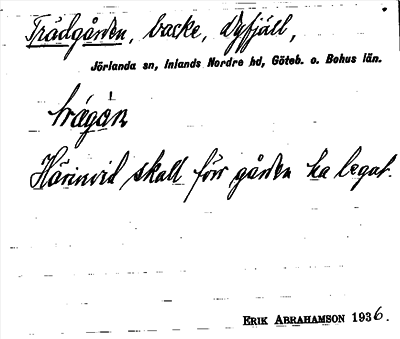 Trädgården, backe, Dyfjäll,
Jörlanda sn, Inlands Nordre hd, Göteb. o. Bohus län.
trägàn
Härinvid skall förr gården ha legat.
ERIK ABRAHAMSON 1936.